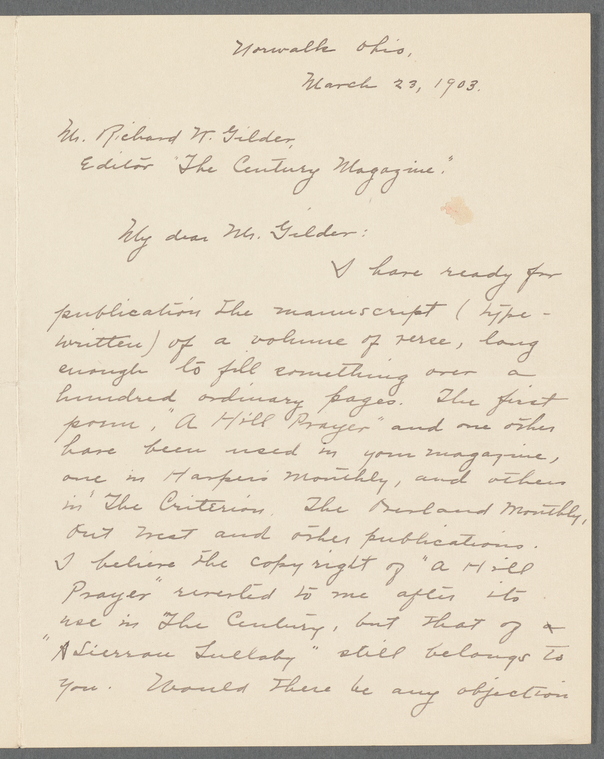 Norwalk Ohio,
March 23, 1903.
Mr. Richard W. Gilder,
Editor "The Century Magazine."
My dear Mr. Gilder:
I have ready for
publication the manuscript (type-
written) of a volume of verse, long
enough to fill something over a
hundred ordinary pages. The first
poem, "A Hill Prayer" and one other
have been used in your magazine,
one in Harper's Monthly, and others
in The Criterion, The Overland Monthly,
Out West and other publications.
I believe the copyright of "A Hill
Prayer" reverted to me after its
use in The Century, but that of
"A Sierran Lullaby" still belongs to
you. Would there be any objection